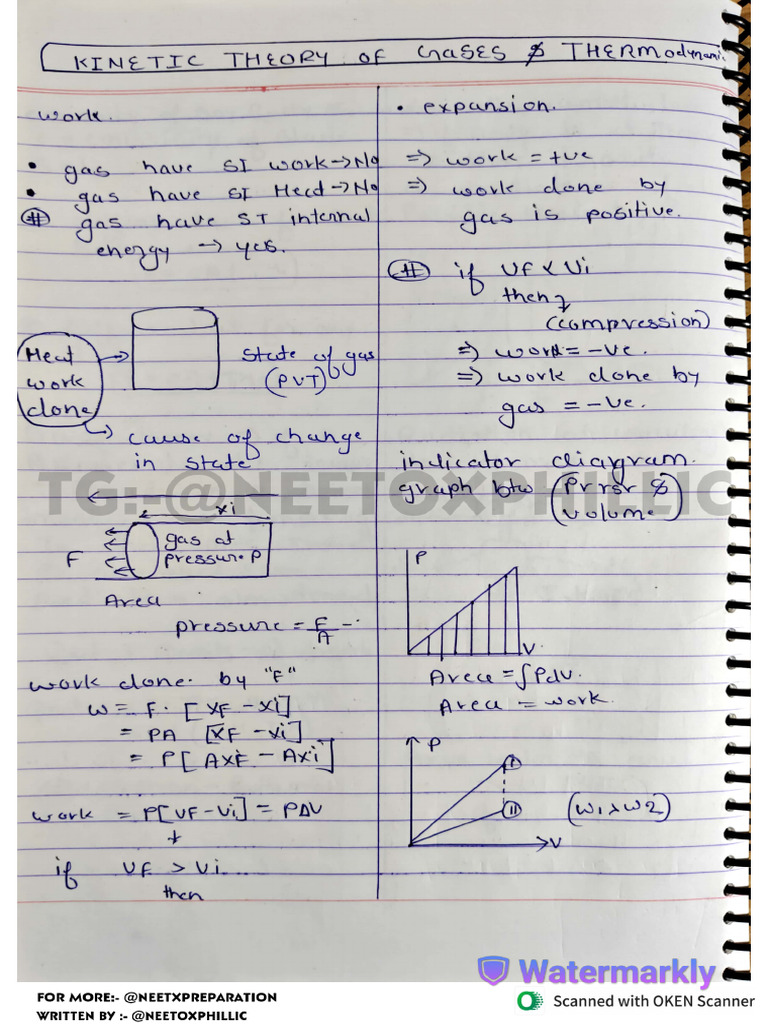 KINETIC THEORY OF GASES & THERModynami.
work.
• gas have SI work → No
• gas have SI Heat → No
# gas have SI internal
energy → yes.
Heat
work
done
state of gas
(PVT)
cause of change
in state
xi
gas at
pressure P
F
Area
pressure = F/A
work done by "F"
W = F. [XF - Xi]
= PA [XF - Xi]
= P[AXF - AXi]
work = P[VF - Vi] = PΔV
if VF > Vi...
then
• expansion.
=> work = +ve
=> work done by
gas is positive.
# if VF < Vi
then
(compression)
=> work = -ve.
=> work done by
gas = -ve.
indicator diagram.
graph btw (Prrsr &
volume)
P
V
Area = ∫PdV.
Area = work.
P
I
II
(W1 > W2)
V
TG:-@NEETOXPHILLIC
Watermarkly
Scanned with OKEN Scanner
FOR MORE:- @NEETXPREPARATION
WRITTEN BY :- @NEETOXPHILLIC